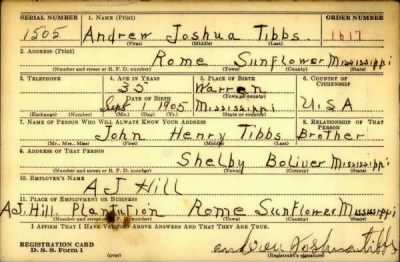 SERIAL NUMBER 1. NAME (Print) ORDER NUMBER
1505 Andrew Joshua Tibbs. 1617
(First) (Middle) (Last)
2. ADDRESS (Print)
Rome Sunflower Mississippi
(Number and street or R. F. D. number) (Town) (County) (State)
3. TELEPHONE 4. AGE IN YEARS 5. PLACE OF BIRTH 6. COUNTRY OF CITIZENSHIP
35 Warren
DATE OF BIRTH (Town or county)
Sept 1 1905 Mississippi U.S.A
(Exchange) (Number) (Mo.) (Day) (Yr.) (State or country)
7. NAME OF PERSON WHO WILL ALWAYS KNOW YOUR ADDRESS 8. RELATIONSHIP OF THAT PERSON
John Henry Tibbs Brother
(Mr., Mrs., Miss) (First) (Middle) (Last)
9. ADDRESS OF THAT PERSON
Shelby Boliver Mississippi
(Number and street or R. F. D. number) (Town) (County) (State)
10. EMPLOYER'S NAME
A J Hill
11. PLACE OF EMPLOYMENT OR BUSINESS
A.J. Hill Plantation Rome Sunflower Mississippi
(Number and street or R. F. D. number) (Town) (County) (State)
I AFFIRM THAT I HAVE VERIFIED ABOVE ANSWERS AND THAT THEY ARE TRUE.
REGISTRATION CARD
D. S. S. Form 1 andrew Joshua Tibbs
(Registrant's signature)